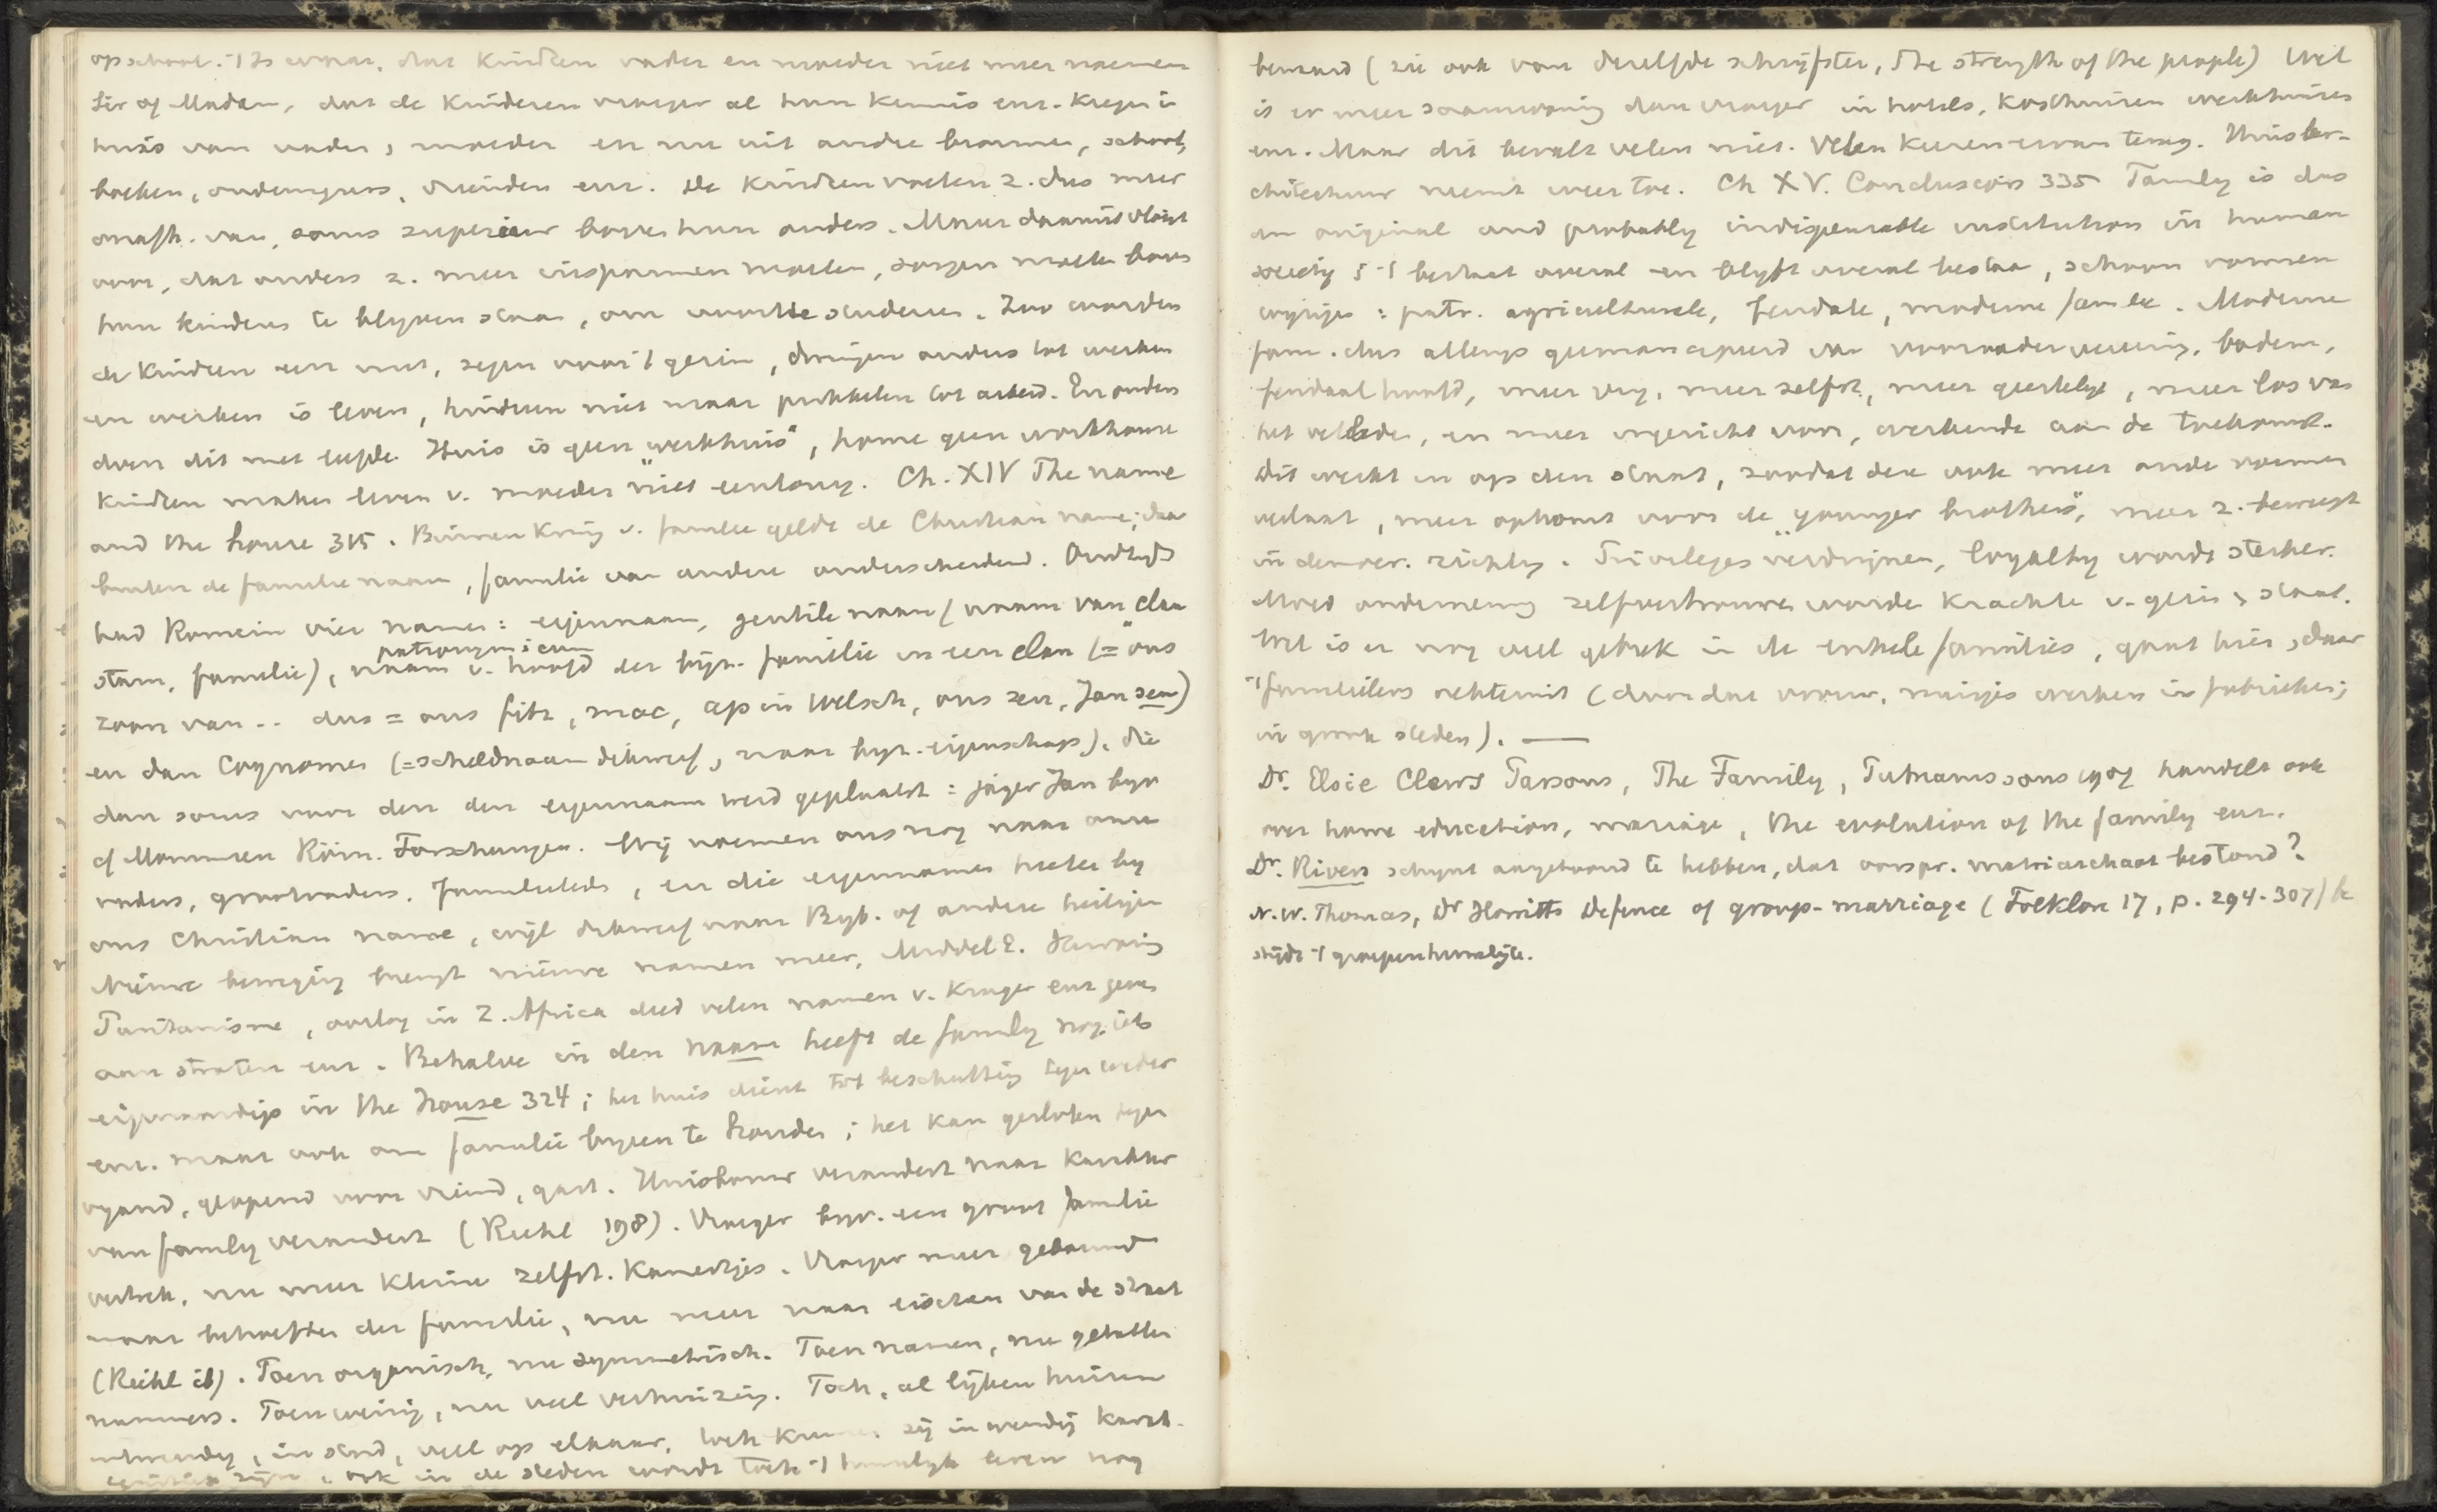 op school. 't Is waar, dat kindren vader en moeder niet meer noemen
Sir of Madam, dat de kinderen vroeger al hun kennis enz. kregen in
huis van vader, moeder en nu uit andre bronnen, school,
boeken, onderwijzers, vrienden enz. De kindren voelen z. dus meer
onafh. van, soms superieur boven hun ouders. Maar daaruit vloeit
voort, dat ouders z. meer inspannen moeten, zorgen moeten boven
hun kinderen te blijven staan, om voort te studeren. Zoo worden
de kindren een nut, zegen voor 't gezin, dwingen ouders tot werken
en werken is leven, hindren niet maar prikkelen tot arbeid. En ouders
doen dit met liefde. Huis is geen "werkhuis", home geen workhouse
Kindren maken leven v. moeder niet eentonig. Ch. XIV The name
and the house 315. Binnen kring v. familie geldt de Christian name; daar
buiten de familienaam, familie van andere onderscheidend. Oudtijds
had Romein vier namen: eigennaam, gentile naam (naam van clan
patronymicum
stam, familie), naam v. hoofd der byz. familie in een clan (= ons
zoon van .. dus = ons fitz, mac, ap in Welsch, ons zen, Jansen)
en dan Cognomen (= scheldnaam dikwerf, naar byz. eigenschap), die
dan soms voor den eigennaam werd geplaatst: jager Jan byv
cf Mommsen Röm. Forschungen. Wij noemen ons nog naar onze
vaders, grootvaders. Familieleden, en die eigennamen heeten by
ons Christian name, wijl dikwerf naar Bijb. of andere heiligen
Nieuwe beweging brengt nieuwe namen mee, Middel E. Hervorming
Puritanisme, oorlog in Z. Africa deed velen namen v. Kruger enz geven
aan straten enz. Behalve in den naam heeft de family nog iets
eigenaardigs in the House 324; het huis dient tot beschutting tegen weder
enz. maar ook om familie byeen te houden; het kan gesloten tegen
vyand, geopend voor vriend, gast. Huisbouw verandert naar karakter
van family verandert (Riehl 198). Vroeger byv. een groot familie
vertrek, nu meer kleine zelfst. kamertjes. Vroeger meer gebouwd
naar behoeften der familie, nu meer naar eischen van de straat
(Riehl ib). Toen organisch, nu symmetrisch. Toen namen, nu getallen
nummers. Toen weinig, nu veel verhuizing. Toch, al lijken huizen
uitwendig, in stad, veel op elkaar, toch kunnen zij inwendig karakt.
zijn, ook in de steden wordt toch 't huiselyk leven nog
bemind (zie ook van dezelfde schrijfster, The strength of the people) Wel
is er meer saamwoning dan vroeger in hotels, kosthuizen werkhuizen
enz. Maar dit bevalt velen niet. Velen keeren ervan terug. Huisar-
chitectuur neemt weer toe. Ch XV. Conclusions 335 Family is dus
an original and probably indispensable institution in human
society; 't bestaat overal en blijft overal bestaan, schoon vormen
wijzigen: patr. agriculturele, feudale, moderne familie. Moderne
fam. dus allengs geemancipeerd van voorvadervereering, bodem,
feudaal hoofd, meer vrij, meer zelfst., meer geestelyk, meer los van
het verleden, en meer ingericht voor, werkende aan de toekomst.
Dit werkt in op den staat, zoodat deze ook meer ande vormen
verlaat, meer opkomt voor de "younger brothers", meer z. beweegt
in democr. richting. Privileges verdwijnen, loyalty wordt sterker.
Moed onderneming zelfvertrouwen worden krachten v. gezin & staat.
Wel is er nog veel gebrek in de enkele families, gaat hier, daar
't familieleven achteruit (doordat vrouw, meisjes werken in fabrieken;
in groote steden). —
Dr. Elsie Clews Parsons, The Family, Putnams sons 1907 handelt ook
over home education, marriage, the evolution of the family enz.
Dr. Rivers schynt aangetoond te hebben, dat oorspr. matriarchaat bestond?
N.W. Thomas, Dr Howitts Defence of group-marriage (Folklore 17, p. 294-307) be
strijdt 't groepenhuwelijk.